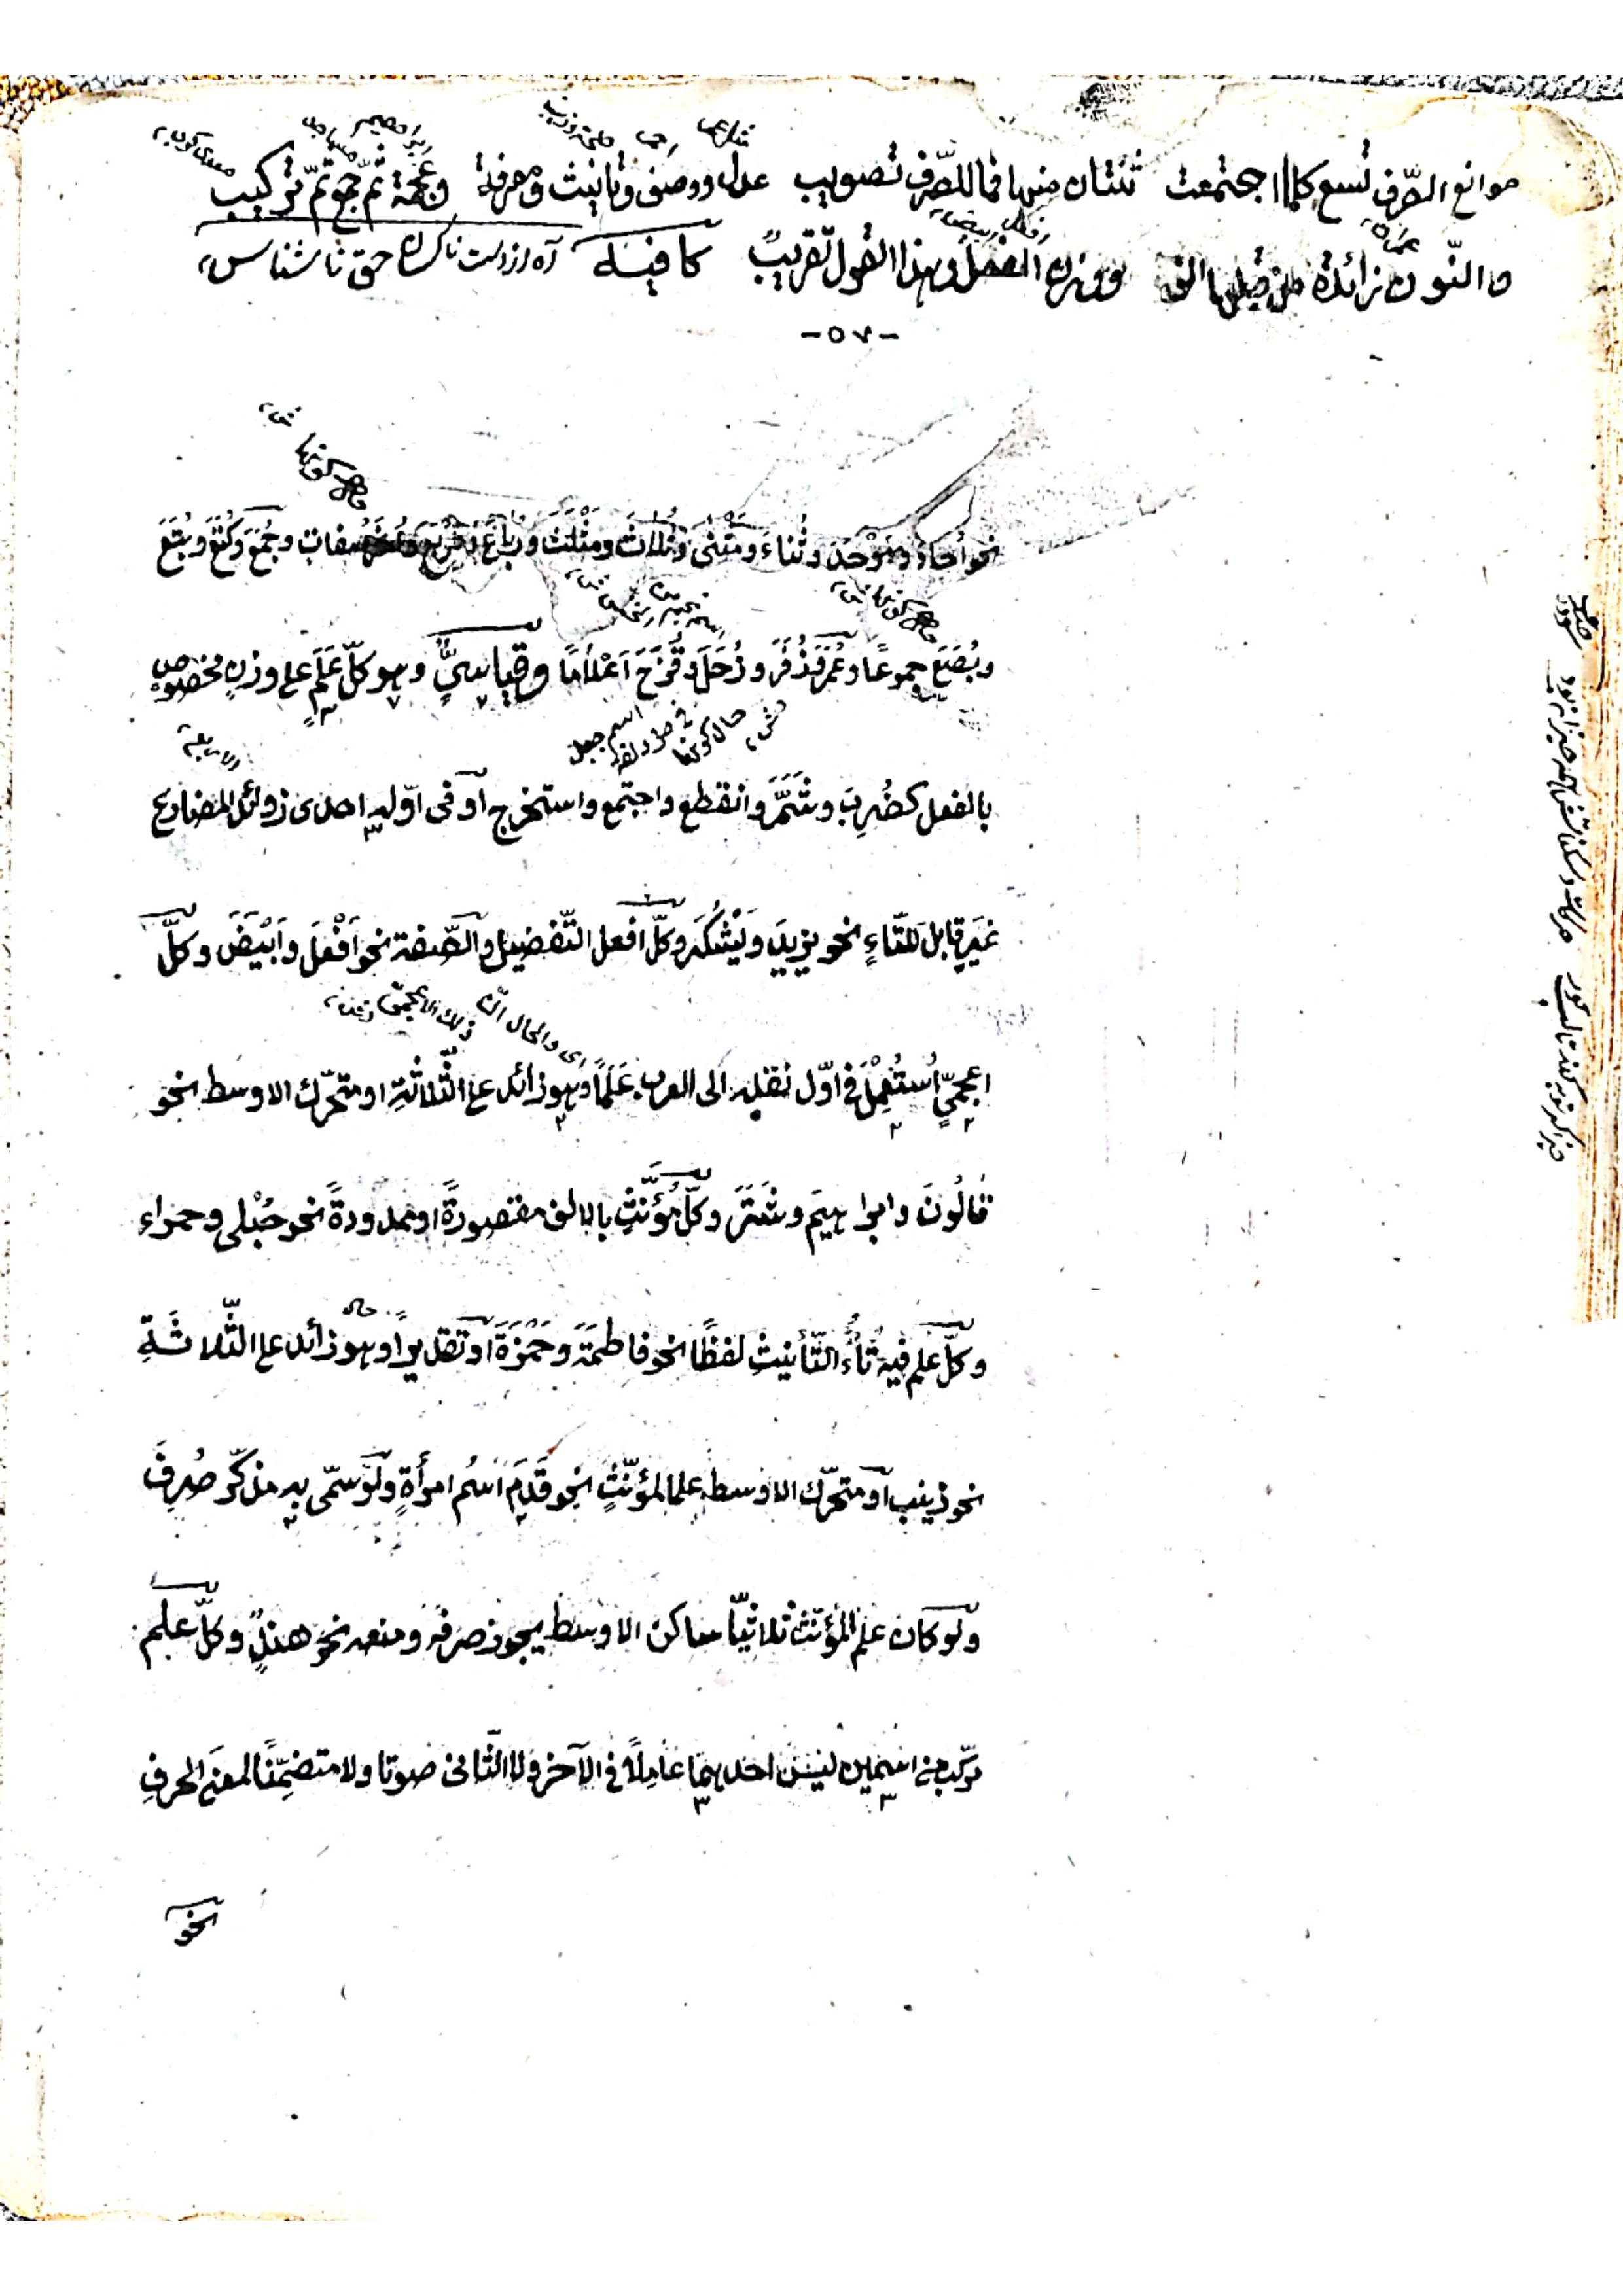 موانع الصّرف تسع كلما اجتمعت ثنتان منها فما للصّرف تصويب عدل ووصف وتانيث ومعرفة وعجمة ثمّ جمع ثمّ تركيب
والنّون زائدة من قبلها الف ووزن الفعل وهذا القول تقريبٌ كافية آه از دست ناكسان حق ناشناس
-٥٧-
نحو أُحادَ ومَوْحَدَ وثُناءَ ومَثْنى وثُلاثَ ومَثْلَثَ ورُباعَ ومَرْبَعَ صفات وجُمَعَ وكُتَعَ وبُتَعَ
وبُصَعَ جموعًا وعُمَرَ وزُفَرَ وزُحَلَ وقُزَحَ اَعْلامًا وقياسيٌّ وهو كلّ عَلَمٍ على وزنٍ مخصوصٍ
بالفعل كضُرِبَ وشَمَّرَ وانقطع واجتمع واستخرج او فى اوّله احدى زوائل المضارع
غيرِ قابل للتّاءِ نحو يزيدَ ويَشْكُرَ وكلّ افعل التّفضيل والصّفة نحو اَفْعَلَ واَبْيَضَ وكلّ
اى والحال انّ ذلك الاعجمىّ
اعجميٍّ اُستُعْمِلَ فى اوّل نقله الى العرب عَلَمًا وهو زائد على الثّلاثةِ او متحرّك الاوسط نحو
قالُونَ وابراهيمَ وشَتَرَ وكلّ مُؤَنَّثٍ بالالف مقصورةً او ممدودةً نحو حُبْلى وحمراء
وكلّ علم فيه تاءُ التّأنيثِ لفظًا نحو فاطمةَ وحَمْزَةَ او تقديرًا وهو زائد على الثّلاثَةِ
نحو زينب او متحرّك الاوسط علما لمؤنّثٍ نحو قَدَمَ اسْم امرأةٍ ولو سمّى به مذكّر صُرِفَ
ولو كان علم المؤنّث ثلاثيّا ساكن الاوسط يجوز صرفه ومنعه نحو هندٍ وكلّ علم
مركّب من اسمين ليس احدهما عاملًا فى الآخر ولا الثّانى صوتا ولا متضمّنًا لمعنى الحرفِ
نحو